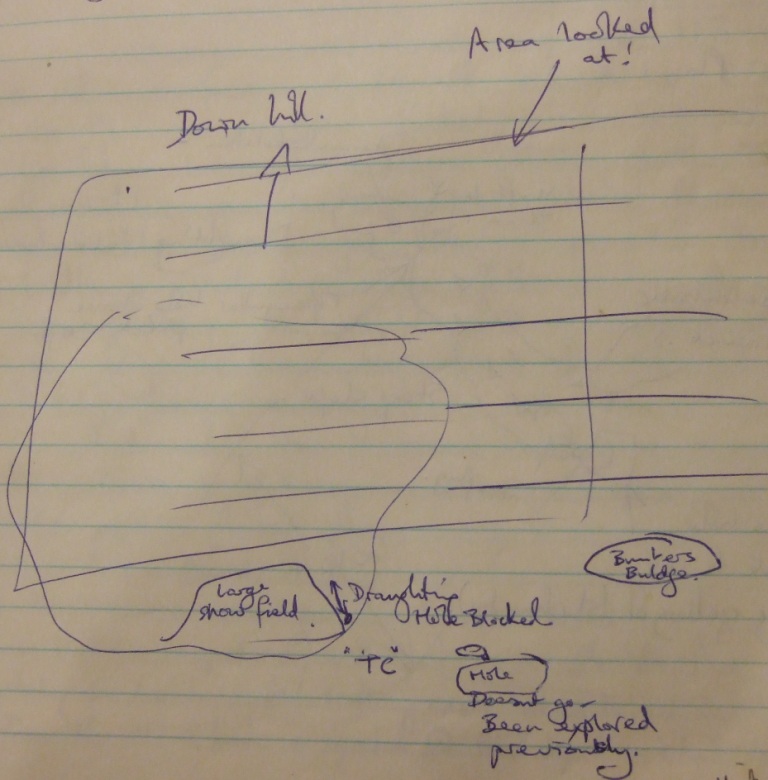 Area looked
at!
Down hill.
Bunters
Buldge.
Large
snow field.
Draughting
Hole Blocked
"TC"
Hole
Doesnt go -
Been explored
previously.